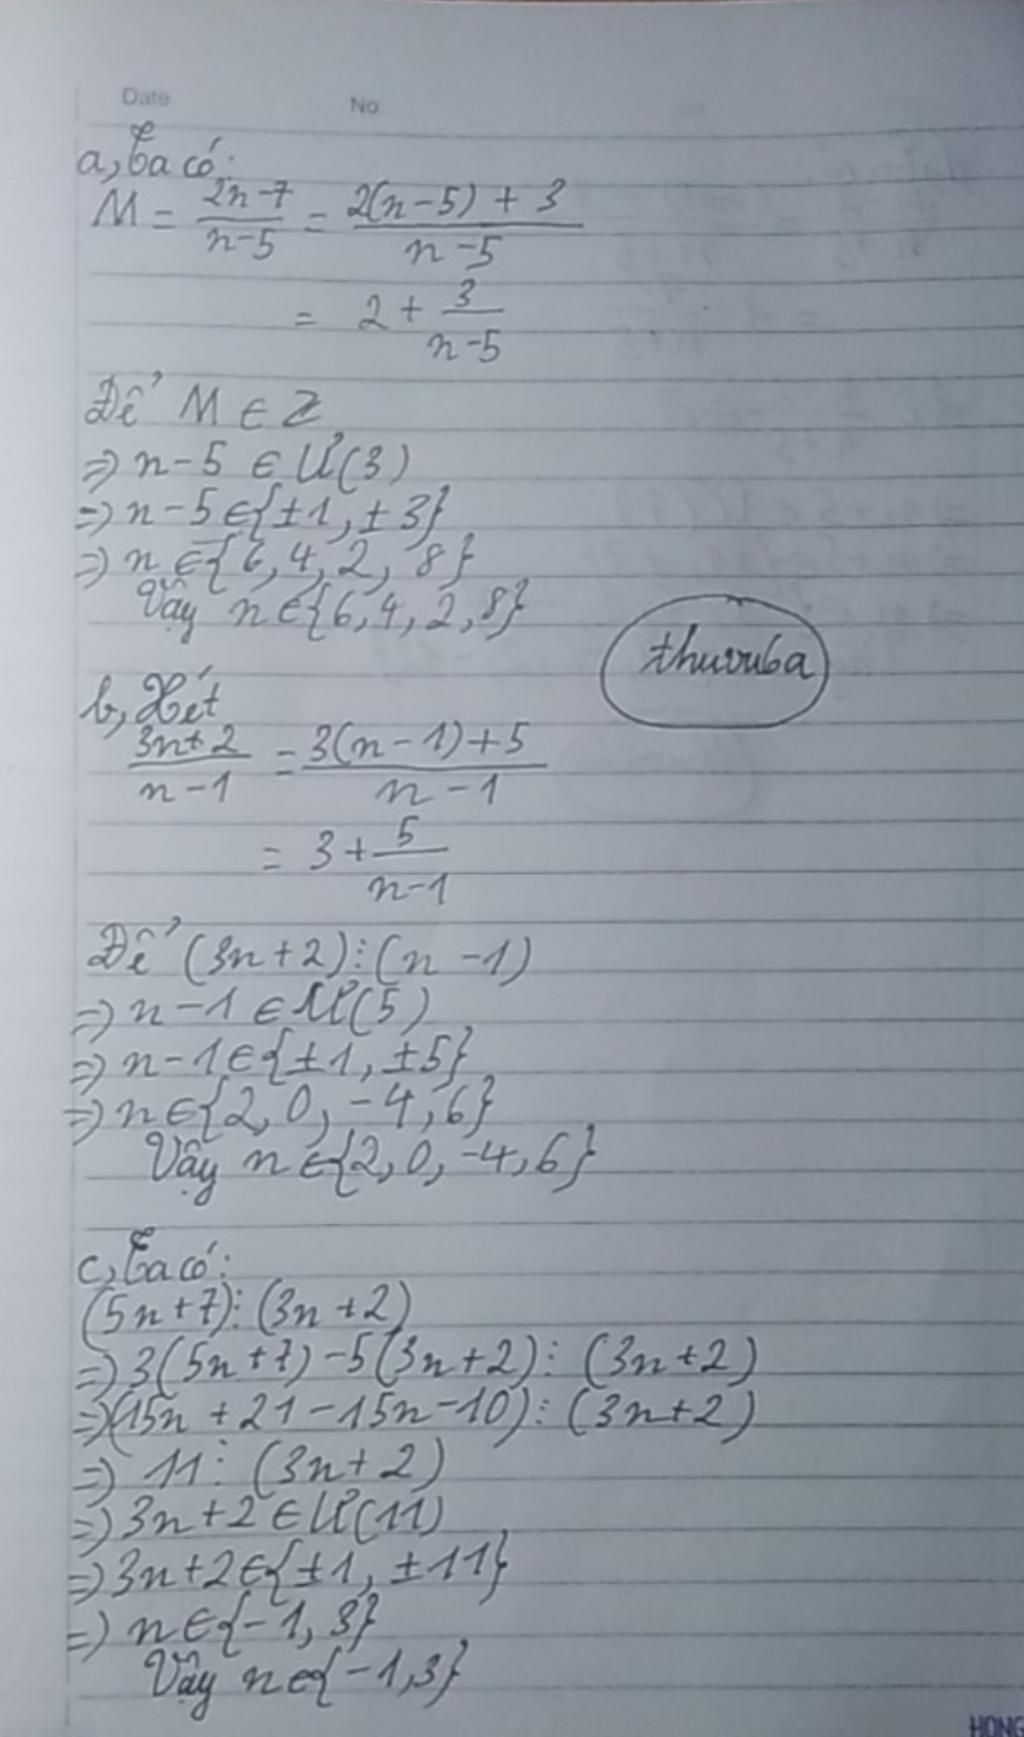 Date No
a, Ta có:
M = \frac{2n-7}{n-5} = \frac{2(n-5)+3}{n-5}
= 2 + \frac{3}{n-5}
Để M ∈ Z
=> n-5 ∈ Ư(3)
=> n-5 ∈ {±1, ±3}
=> n ∈ {6, 4, 2, 8}
Vậy n ∈ {6, 4, 2, 8}
thuvuba
b, Xét
\frac{3n+2}{n-1} = \frac{3(n-1)+5}{n-1}
= 3 + \frac{5}{n-1}
Để (3n+2) ⋮ (n-1)
=> n-1 ∈ Ư(5)
=> n-1 ∈ {±1, ±5}
=> n ∈ {2, 0, -4, 6}
Vậy n ∈ {2, 0, -4, 6}
c, Ta có:
(5n+7) ⋮ (3n+2)
=> 3(5n+7) - 5(3n+2) ⋮ (3n+2)
=> (15n + 21 - 15n - 10) ⋮ (3n+2)
=> 11 ⋮ (3n+2)
=> 3n+2 ∈ Ư(11)
=> 3n+2 ∈ {±1, ±11}
=> n ∈ {-1, 3}
Vậy n ∈ {-1, 3}
HONG